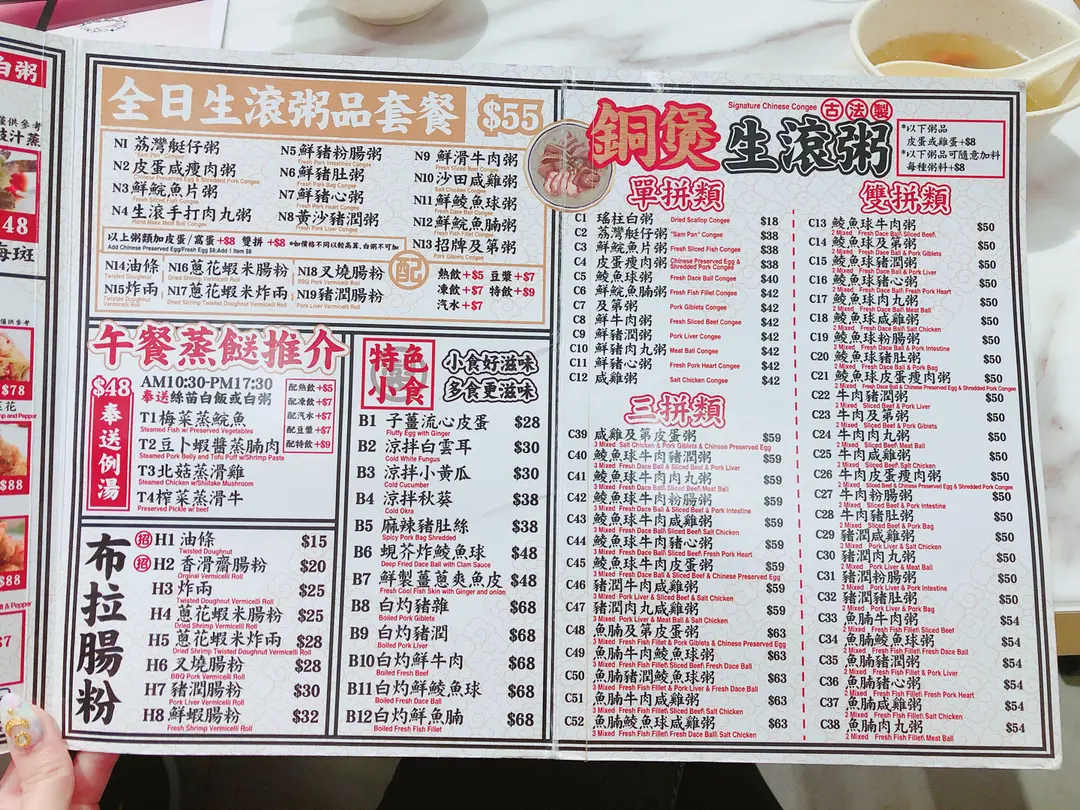 白粥
48
$78
$88
$88
全日生滾粥品套餐 $55
N1 荔灣艇仔粥
"Sam Pan" Congee
N2 皮蛋咸瘦肉粥
Chinese Preserved Egg & Shredded Pork Congee
N3 鮮鯇魚片粥
Fresh Sliced Fish Congee
N4 生滾手打肉丸粥
Hand Make Meat Ball Congee
N5 鮮豬粉腸粥
Fresh Pork Intestines Congee
N6 鮮豬肚粥
Fresh Pork Bag Congee
N7 鮮豬心粥
Fresh Pork Heart Congee
N8 黃沙豬潤粥
Pork Liver Congee
N9 鮮滑牛肉粥
Fresh Sliced Beef Congee
N10 沙田咸雞粥
Salt Chicken Congee
N11 鮮鯪魚球粥
Fresh Dace Ball Congee
N12 鮮鯇魚腩粥
Fresh Fish Fillet Congee
N13 招牌及第粥
Pork Giblets Congee
以上粥類加皮蛋/窩蛋 +$8 雙拼 +$8 *如價格不同以較高算,白粥不可加
Add Chinese Preserved Egg/Fresh Egg $8:Add 1 Item $8
N14 油條
Twisted Doughnut
N15 炸兩
Twisted Doughnut Vermicelli Roll
N16 蔥花蝦米腸粉
Dried Shrimp Vermicelli Roll
N17 蔥花蝦米炸兩
Dried Shrimp Twisted Doughnut Vermicelli Roll
N18 叉燒腸粉
BBQ Pork Vermicelli Roll
N19 豬潤腸粉
Pork Liver Vermicelli Roll
配
熱飲+$5 豆漿+$7
凍飲+$7 特飲+$9
汽水+$7
午餐蒸餸推介
$48
奉送例湯
AM10:30-PM17:30
奉送絲苗白飯或白粥
T1 梅菜蒸鯇魚
Steamed Fish w/ Preserved Vegetables
T2 豆卜蝦醬蒸腩肉
Steamed Pork Belly and Tofu Puff w/Shrimp Paste
T3 北菇蒸滑雞
Steamed Chicken w/Shiitake Mushroom
T4 榨菜蒸滑牛
Preserved Pickle w/ beef
配熱飲+$5
配凍飲+$7
配汽水+$7
配豆漿+$7
配特飲+$9
布拉腸粉
招 H1 油條 $15
Twisted Doughnut
招 H2 香滑齋腸粉 $20
Orginal Vermicelli Roll
H3 炸兩 $25
Twisted Doughnut Vermicelli Roll
H4 蔥花蝦米腸粉 $25
Dried Shrimp Vermicelli Roll
H5 蔥花蝦米炸兩 $28
Dried Shrimp Twisted Doughnut Vermicelli Roll
H6 叉燒腸粉 $28
BBQ Pork Vermicelli Roll
H7 豬潤腸粉 $30
Pork Liver Vermicelli Roll
H8 鮮蝦腸粉 $32
Fresh Shrimp Vermicelli Roll
特色小食
小食好滋味
多食更滋味
B1 子薑流心皮蛋 $28
Fluffy Egg with Ginger
B2 涼拌白雲耳 $30
Cold White Fungus
B3 涼拌小黃瓜 $30
Cold Cucumber
B4 涼拌秋葵 $38
Cold Okra
B5 麻辣豬肚絲 $38
Spicy Pork Bag Shredded
B6 蜆芥炸鯪魚球 $48
Deep Fried Dace Ball with Clam Sauce
B7 鮮製薑蔥爽魚皮 $48
Fresh Cool Fish Skin with Ginger and onion
B8 白灼豬雜 $68
Boiled Pork Giblets
B9 白灼豬潤 $68
Boiled Pork Liver
B10 白灼鮮牛肉 $68
Boiled Fresh Beef
B11 白灼鮮鯪魚球 $68
Boiled Fresh Dace Ball
B12 白灼鮮魚腩 $68
Boiled Fresh Fish Fillet
銅煲生滾粥
Signature Chinese Congee 古法製
*以下粥品
皮蛋或雞蛋+$8
*以下粥品可隨意加料
每種粥料+$8
單拼類
C1 瑤柱白粥 Dried Scallop Congee $18
C2 荔灣艇仔粥 "Sam Pan" Congee $38
C3 鮮鯇魚片粥 Fresh Sliced Fish Congee $38
C4 皮蛋瘦肉粥 Chinese Preserved Egg & Shredded Pork Congee $38
C5 鯪魚球粥 Fresh Dace Ball Congee $40
C6 鮮鯇魚腩粥 Fresh Fish Fillet Congee $42
C7 及第粥 Pork Giblets Congee $42
C8 鮮牛肉粥 Fresh Sliced Beef Congee $42
C9 鮮豬潤粥 Pork Liver Congee $42
C10 鮮豬肉丸粥 Meat Ball Congee $42
C11 鮮豬心粥 Fresh Pork Heart Congee $42
C12 咸雞粥 Salt Chicken Congee $42
三拼類
C39 咸雞及第皮蛋粥 $59
3 Mixed Salt Chicken & Pork Giblets & Chinese Preserved Egg
C40 鯪魚球牛肉豬潤粥 $59
3 Mixed Fresh Dace Ball & Sliced Beef & Pork Liver
C41 鯪魚球牛肉肉丸粥 $59
3 Mixed Fresh Dace Ball\ Sliced Beef\ Meat Ball
C42 鯪魚球牛肉粉腸粥 $59
3 Mixed Fresh Dace Ball & Sliced Beef & Pork Intestine
C43 鯪魚球牛肉咸雞粥 $59
3 Mixed Fresh Dace Ball\ Sliced Beef\ Salt Chicken
C44 鯪魚球牛肉豬心粥 $59
3 Mixed Fresh Dace Ball\ Sliced Beef\ Fresh Pork Heart
C45 鯪魚球牛肉皮蛋粥 $59
3 Mixed Fresh Dace Ball & Sliced Beef & Chinese Preserved Egg
C46 豬潤牛肉咸雞粥 $59
3 Mixed Pork Liver & Sliced Beef & Salt Chicken
C47 豬潤肉丸咸雞粥 $59
3 Mixed Pork Liver & Meat Ball & Salt Chicken
C48 魚腩及第皮蛋粥 $63
3 Mixed Fresh Fish Fillet & Pork Giblets & Chinese Preserved Egg
C49 魚腩牛肉鯪魚球粥 $63
3 Mixed Fresh Fish Fillet\ Sliced Beef\ Fresh Dace Ball
C50 魚腩豬潤鯪魚球粥 $63
3 Mixed Fresh Fish Fillet & Pork Liver & Fresh Dace Ball
C51 魚腩牛肉咸雞粥 $63
3 Mixed Fresh Fish Fillet\ Sliced Beef\ Salt Chicken
C52 魚腩鯪魚球咸雞粥 $63
3 Mixed Fresh Fish Fillet\ Fresh Dace Ball\ Salt Chicken
雙拼類
C13 鯪魚球牛肉粥 $50
2 Mixed Fresh Dace Ball\ Sliced Beef\
C14 鯪魚球及第粥 $50
2 Mixed Fresh Dace Ball & Pork Giblets
C15 鯪魚球豬潤粥 $50
2 Mixed Fresh Dace Ball & Pork Liver
C16 鯪魚球豬心粥 $50
2 Mixed Fresh Dace Ball\ Fresh Pork Heart
C17 鯪魚球肉丸粥 $50
2 Mixed Fresh Dace Ball\ Meat Ball
C18 鯪魚球咸雞粥 $50
2 Mixed Fresh Dace Ball\ Salt Chicken
C19 鯪魚球粉腸粥 $50
2 Mixed Fresh Dace Ball & Pork Intestine
C20 鯪魚球豬肚粥 $50
2 Mixed Fresh Dace Ball & Pork Bag
C21 鯪魚球皮蛋瘦肉粥 $50
2 Mixed Fresh Dace Ball & Chinese Preserved Egg & Shredded Pork Congee
C22 牛肉豬潤粥 $50
2 Mixed Sliced Beef & Pork Liver
C23 牛肉及第粥 $50
2 Mixed Sliced Beef & Pork Giblets
C24 牛肉肉丸粥 $50
2 Mixed Sliced Beef\ Meat Ball
C25 牛肉咸雞粥 $50
2 Mixed Sliced Beef\ Salt Chicken
C26 牛肉皮蛋瘦肉粥 $50
2 Mixed Sliced Beef & Chinese Preserved Egg & Shredded Pork Congee
C27 牛肉粉腸粥 $50
2 Mixed Sliced Beef & Pork Intestine
C28 牛肉豬肚粥 $50
2 Mixed Sliced Beef & Pork Bag
C29 豬潤咸雞粥 $50
2 Mixed Pork Liver & Salt Chicken
C30 豬潤肉丸粥 $50
2 Mixed Pork Liver & Meat Ball
C31 豬潤粉腸粥 $50
2 Mixed Pork Liver & Pork Intestine
C32 豬潤豬肚粥 $50
2 Mixed Pork Liver & Pork Bag
C33 魚腩牛肉粥 $54
2 Mixed Fresh Fish Fillet\ Sliced Beef
C34 魚腩鯪魚球粥 $54
2 Mixed Fresh Fish Fillet\ Fresh Dace Ball
C35 魚腩豬潤粥 $54
2 Mixed Fresh Fish Fillet & Pork Liver
C36 魚腩豬心粥 $54
2 Mixed Fresh Fish Fillet\ Fresh Pork Heart
C37 魚腩咸雞粥 $54
2 Mixed Fresh Fish Fillet\ Salt Chicken
C38 魚腩肉丸粥 $54
2 Mixed Fresh Fish Fillet\ Meat Ball